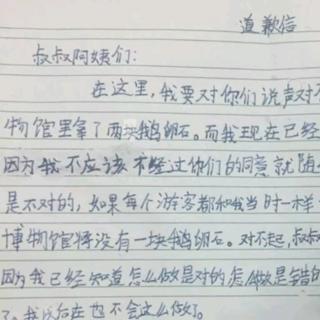 道歉信
叔叔阿姨们:
在这里,我要对你们说声对不
物馆里拿了两块鹅卵石。而我现在已经
因为我不应该不经过你们的同意就随
是不对的,如果每个游客都和我当时一样
博物馆将没有一块鹅卵石。对不起,叔叔
因为我已经知道怎么做是对的怎么做是错的
了。我以后在也不会这么做了。